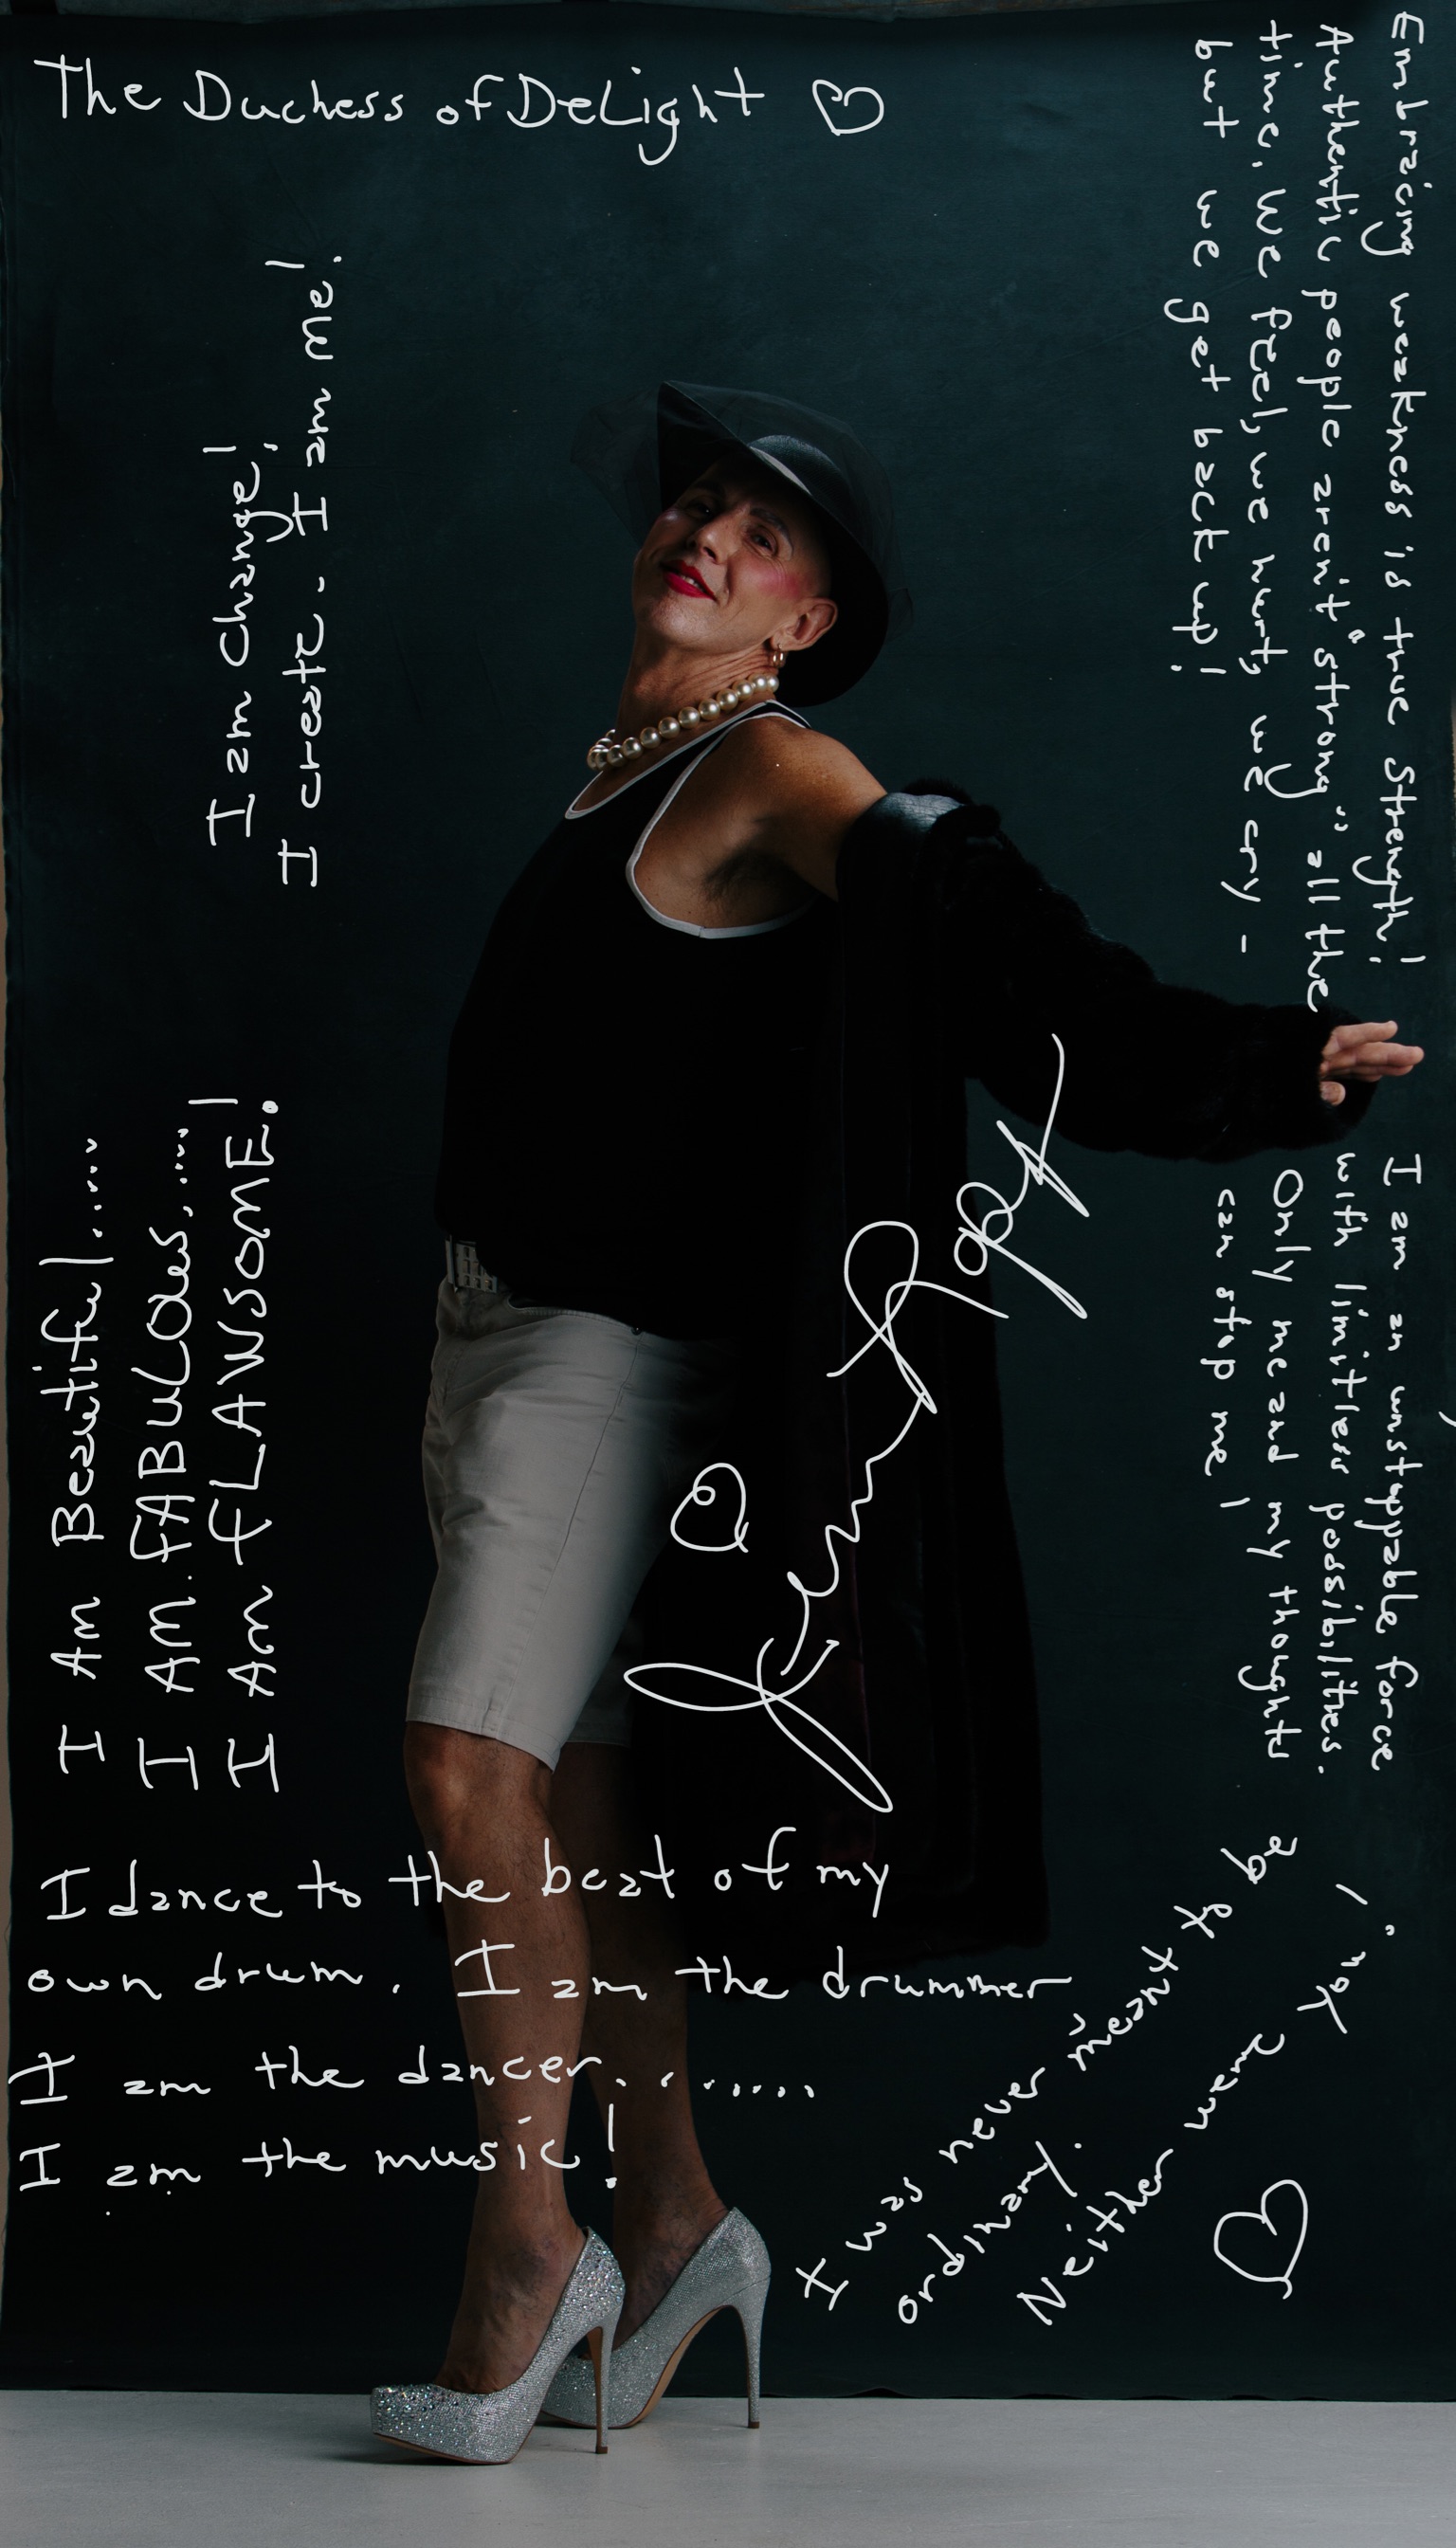 The Duchess of DeLight
Embracing weakness is true strength!
Authentic people aren't "strong" all the
time. We feel, we hurt, we cry -
but we get back up!
I am change!
I create. I am me!
I am an unstoppable force
with limitless possibilities.
Only me and my thoughts
can stop me!
I Am Beautiful.....
I AM FABULOUS.....!
I Am fLAWSOME!
I dance to the beat of my
own drum. I am the drummer
I am the dancer........
I am the music!
I was never meant to be
ordinary.
Neither were
You!